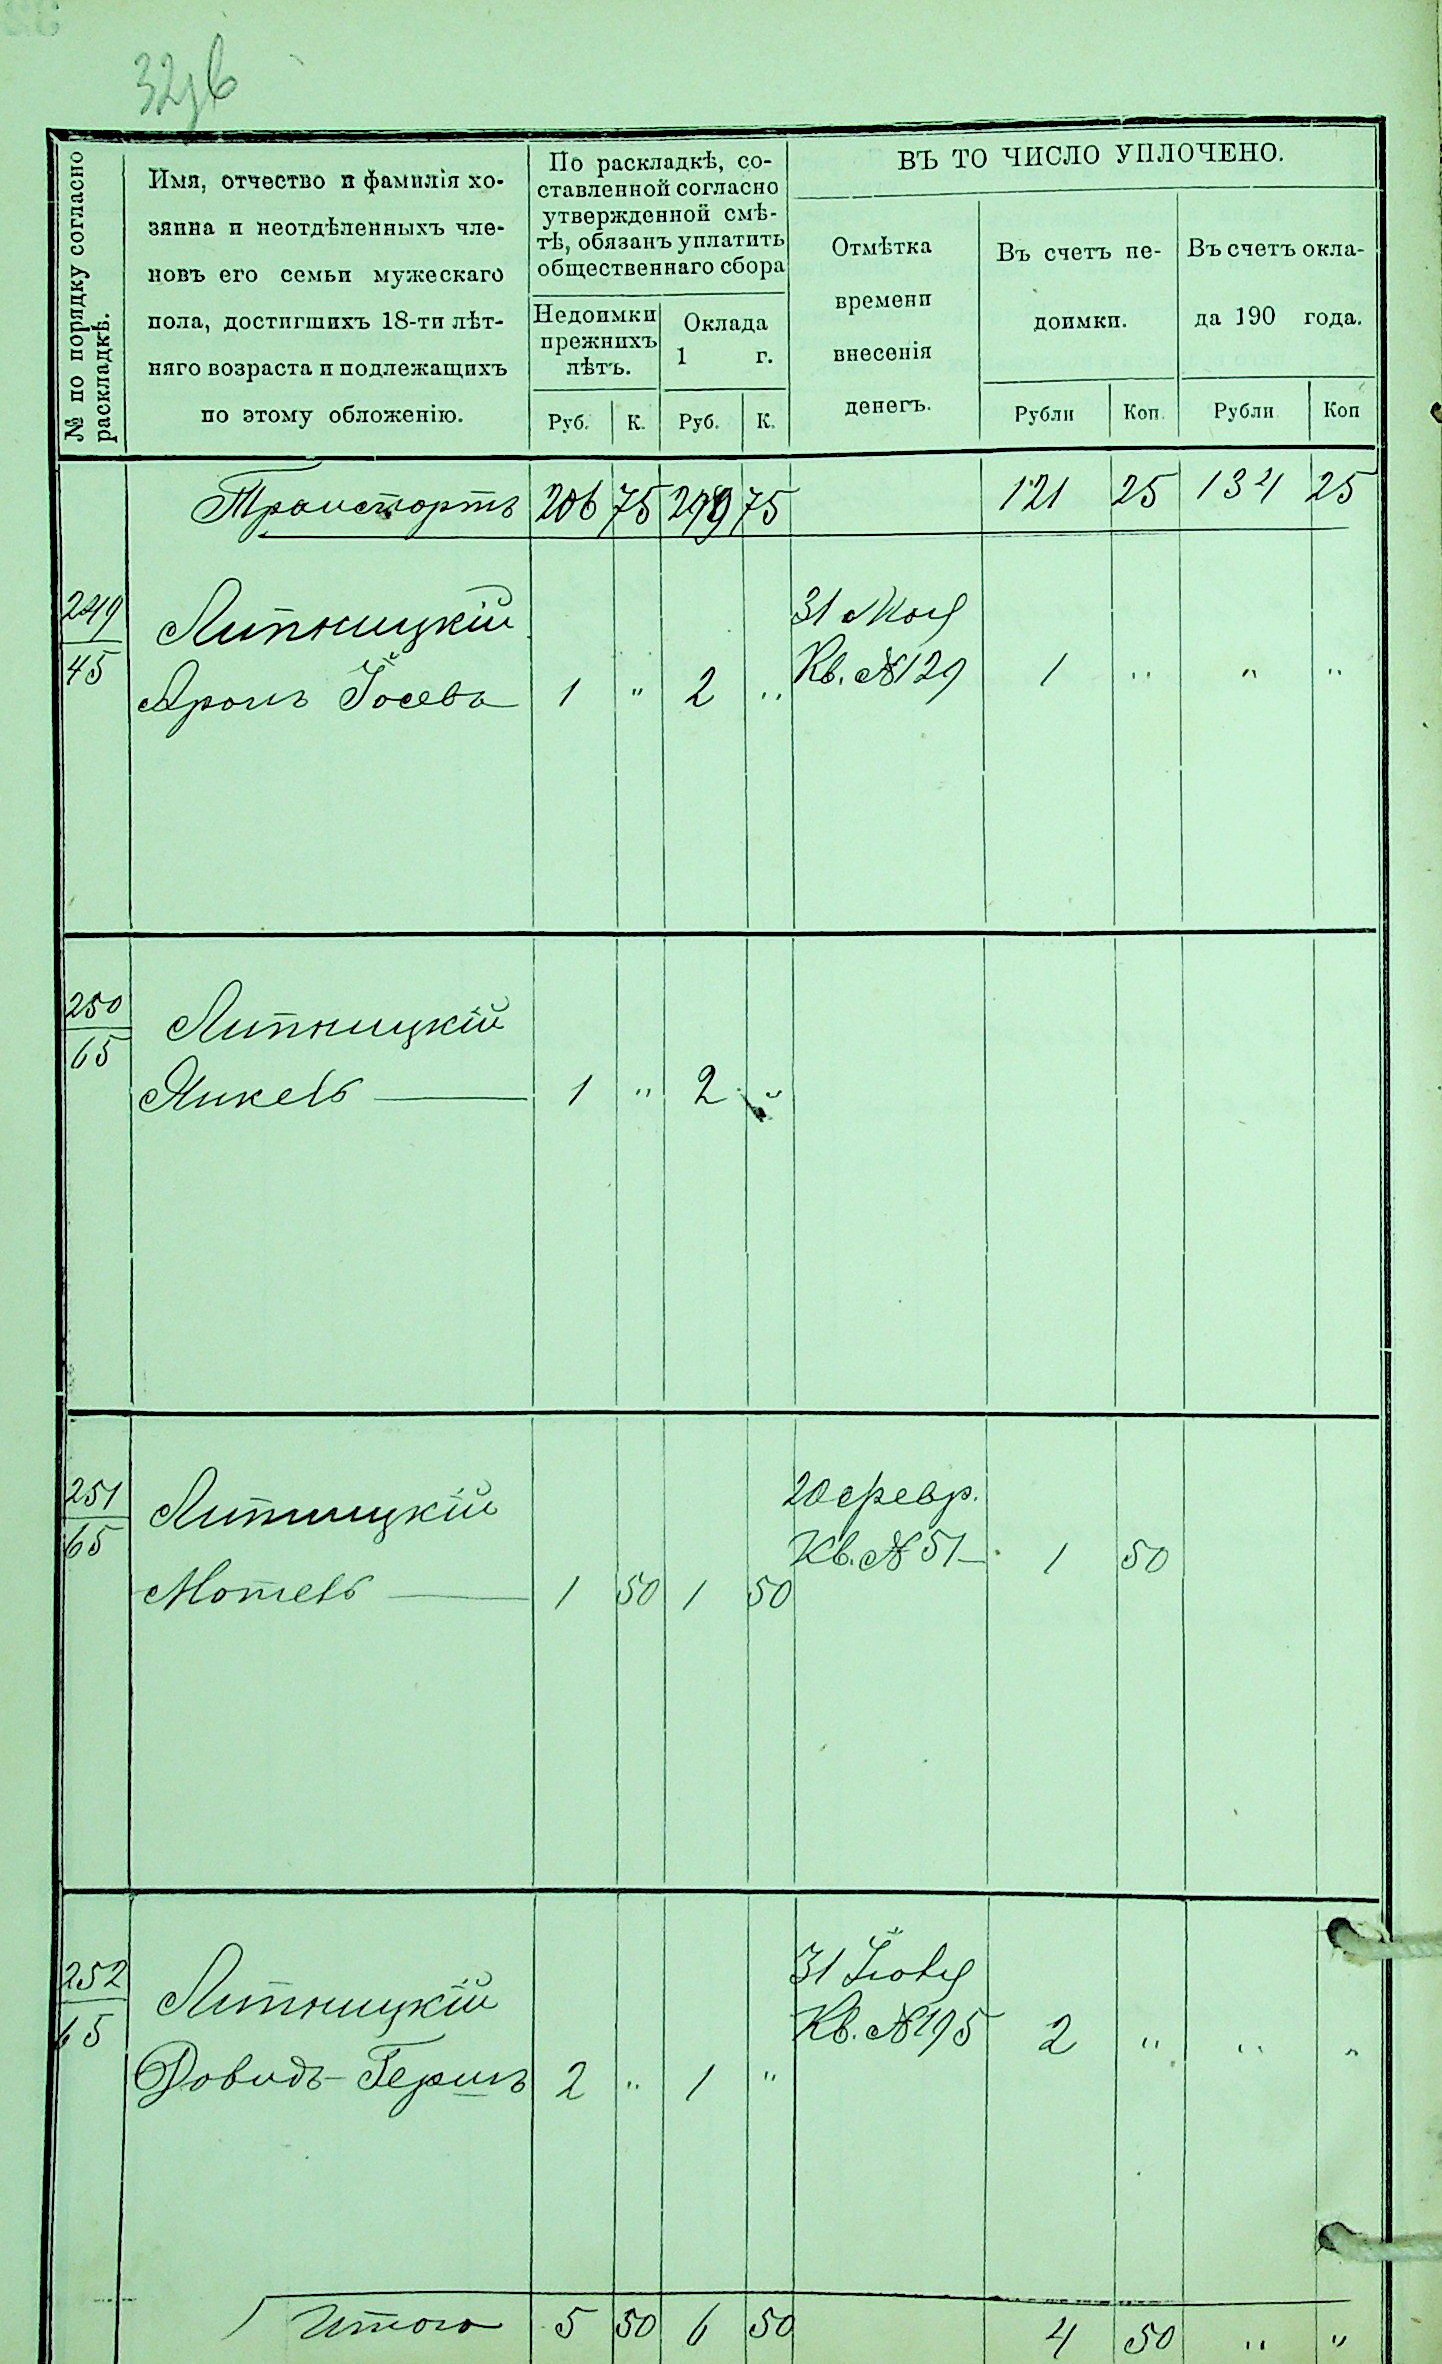 № по порядку согласно
раскладкѣ.
Имя, отчество и фамилія хо-
зяина и неотдѣленныхъ чле-
новъ его семьи мужескаго
пола, достигшихъ 18-ти лѣт-
няго возраста и подлежащихъ
по этому обложенію.
По раскладкѣ, со-
ставленной согласно
утвержденной смѣ-
тѣ, обязанъ уплатить
общественнаго сбора
Недоимки
прежнихъ
лѣтъ.
Оклада
1 г.
Руб. К. Руб. К.
ВЪ ТО ЧИСЛО УПЛОЧЕНО.
Отмѣтка
времени
внесенія
денегъ.
Въ счетъ не-
доимки.
Въ счетъ окла-
да 190 года.
Рубли Коп. Рубли Коп
Транспортъ 206 75 75 121 25 134 25
249 Липницкій 31 Мая
45 Аронъ Іосевъ 1 " 2 " Кв. № 129 1 " " "
250 Липницкій
65 Янкель 1 " 2 "
251 Липницкій 20 февр.
65 Мотель 1 50 1 50 Кв. № 51 1 50
252 Липницкій 31 Іюля
65 Довидъ-Гершъ 2 " 1 " Кв. № 195 2 " " "
Итого 5 50 6 50 4 50 " "